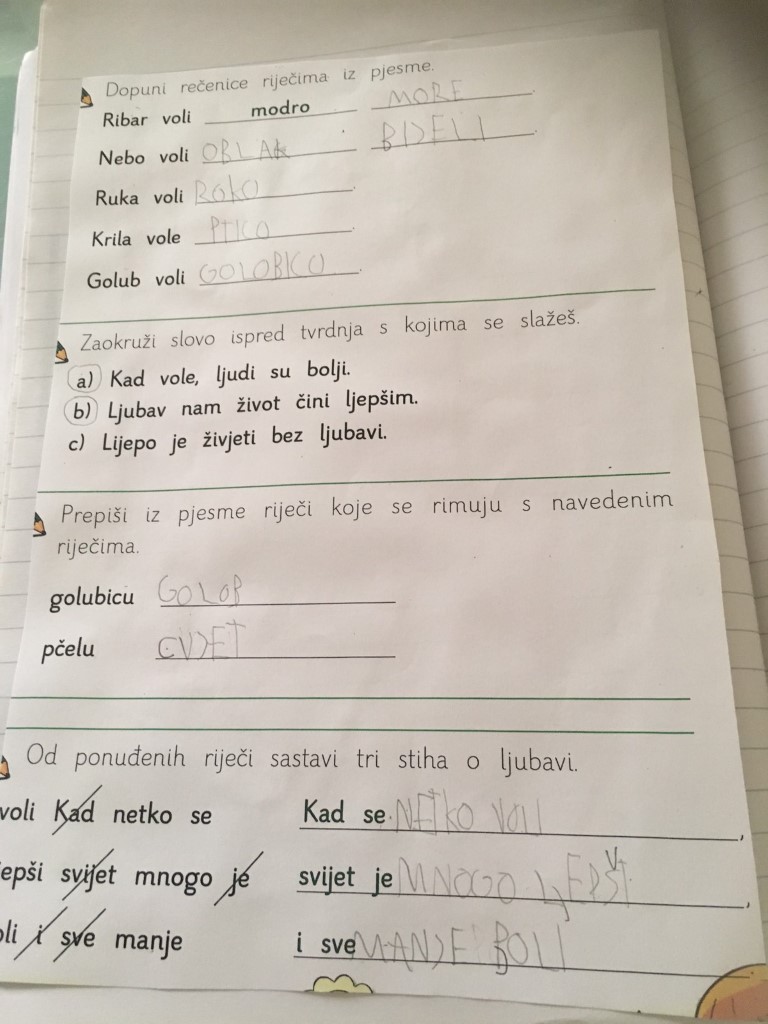 Dopuni rečenice riječima iz pjesme.
Ribar voli modro MORE.
Nebo voli OBLAK BIJELI.
Ruka voli ROKO.
Krila vole PTICO.
Golub voli GOLOBICO.
Zaokruži slovo ispred tvrdnja s kojima se slažeš.
a) Kad vole, ljudi su bolji.
b) Ljubav nam život čini ljepšim.
c) Lijepo je živjeti bez ljubavi.
Prepiši iz pjesme riječi koje se rimuju s navedenim
riječima.
golubicu GOLOB
pčelu CVJET
Od ponuđenih riječi sastavi tri stiha o ljubavi.
voli Kad netko se Kad se NETKO VOLI,
epši svijet mnogo je svijet je MNOGO LJEPŠI,
oli i sve manje i sve MANJE BOLI